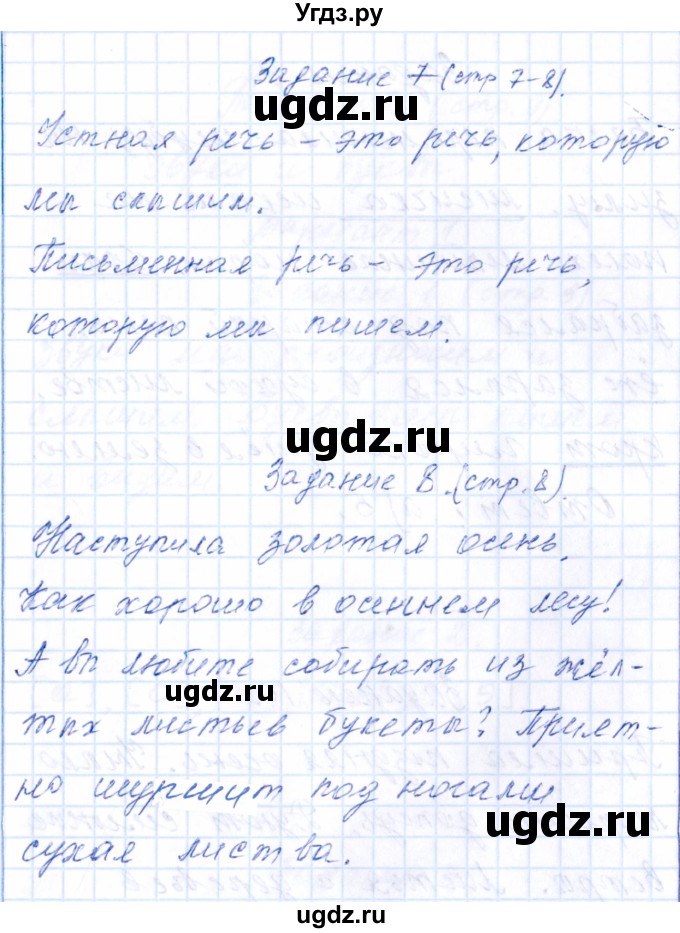 Угдз.ру
Задание 7 (стр 7-8).
ugdz.ru
Устная речь - это речь, которую
мы слышим.
ugdz.ru
Письменная речь - это речь,
которую мы пишем.
ugdz.ru
Задание 8. (стр. 8).
Наступила золотая осень.
Как хорошо в осеннем лесу!
А вы любите собирать из жёл-
ugdz.ru
тых листьев букеты? Прият-
но шуршит под ногами
ugdz.ru
сухая листва.
ugdz.ru